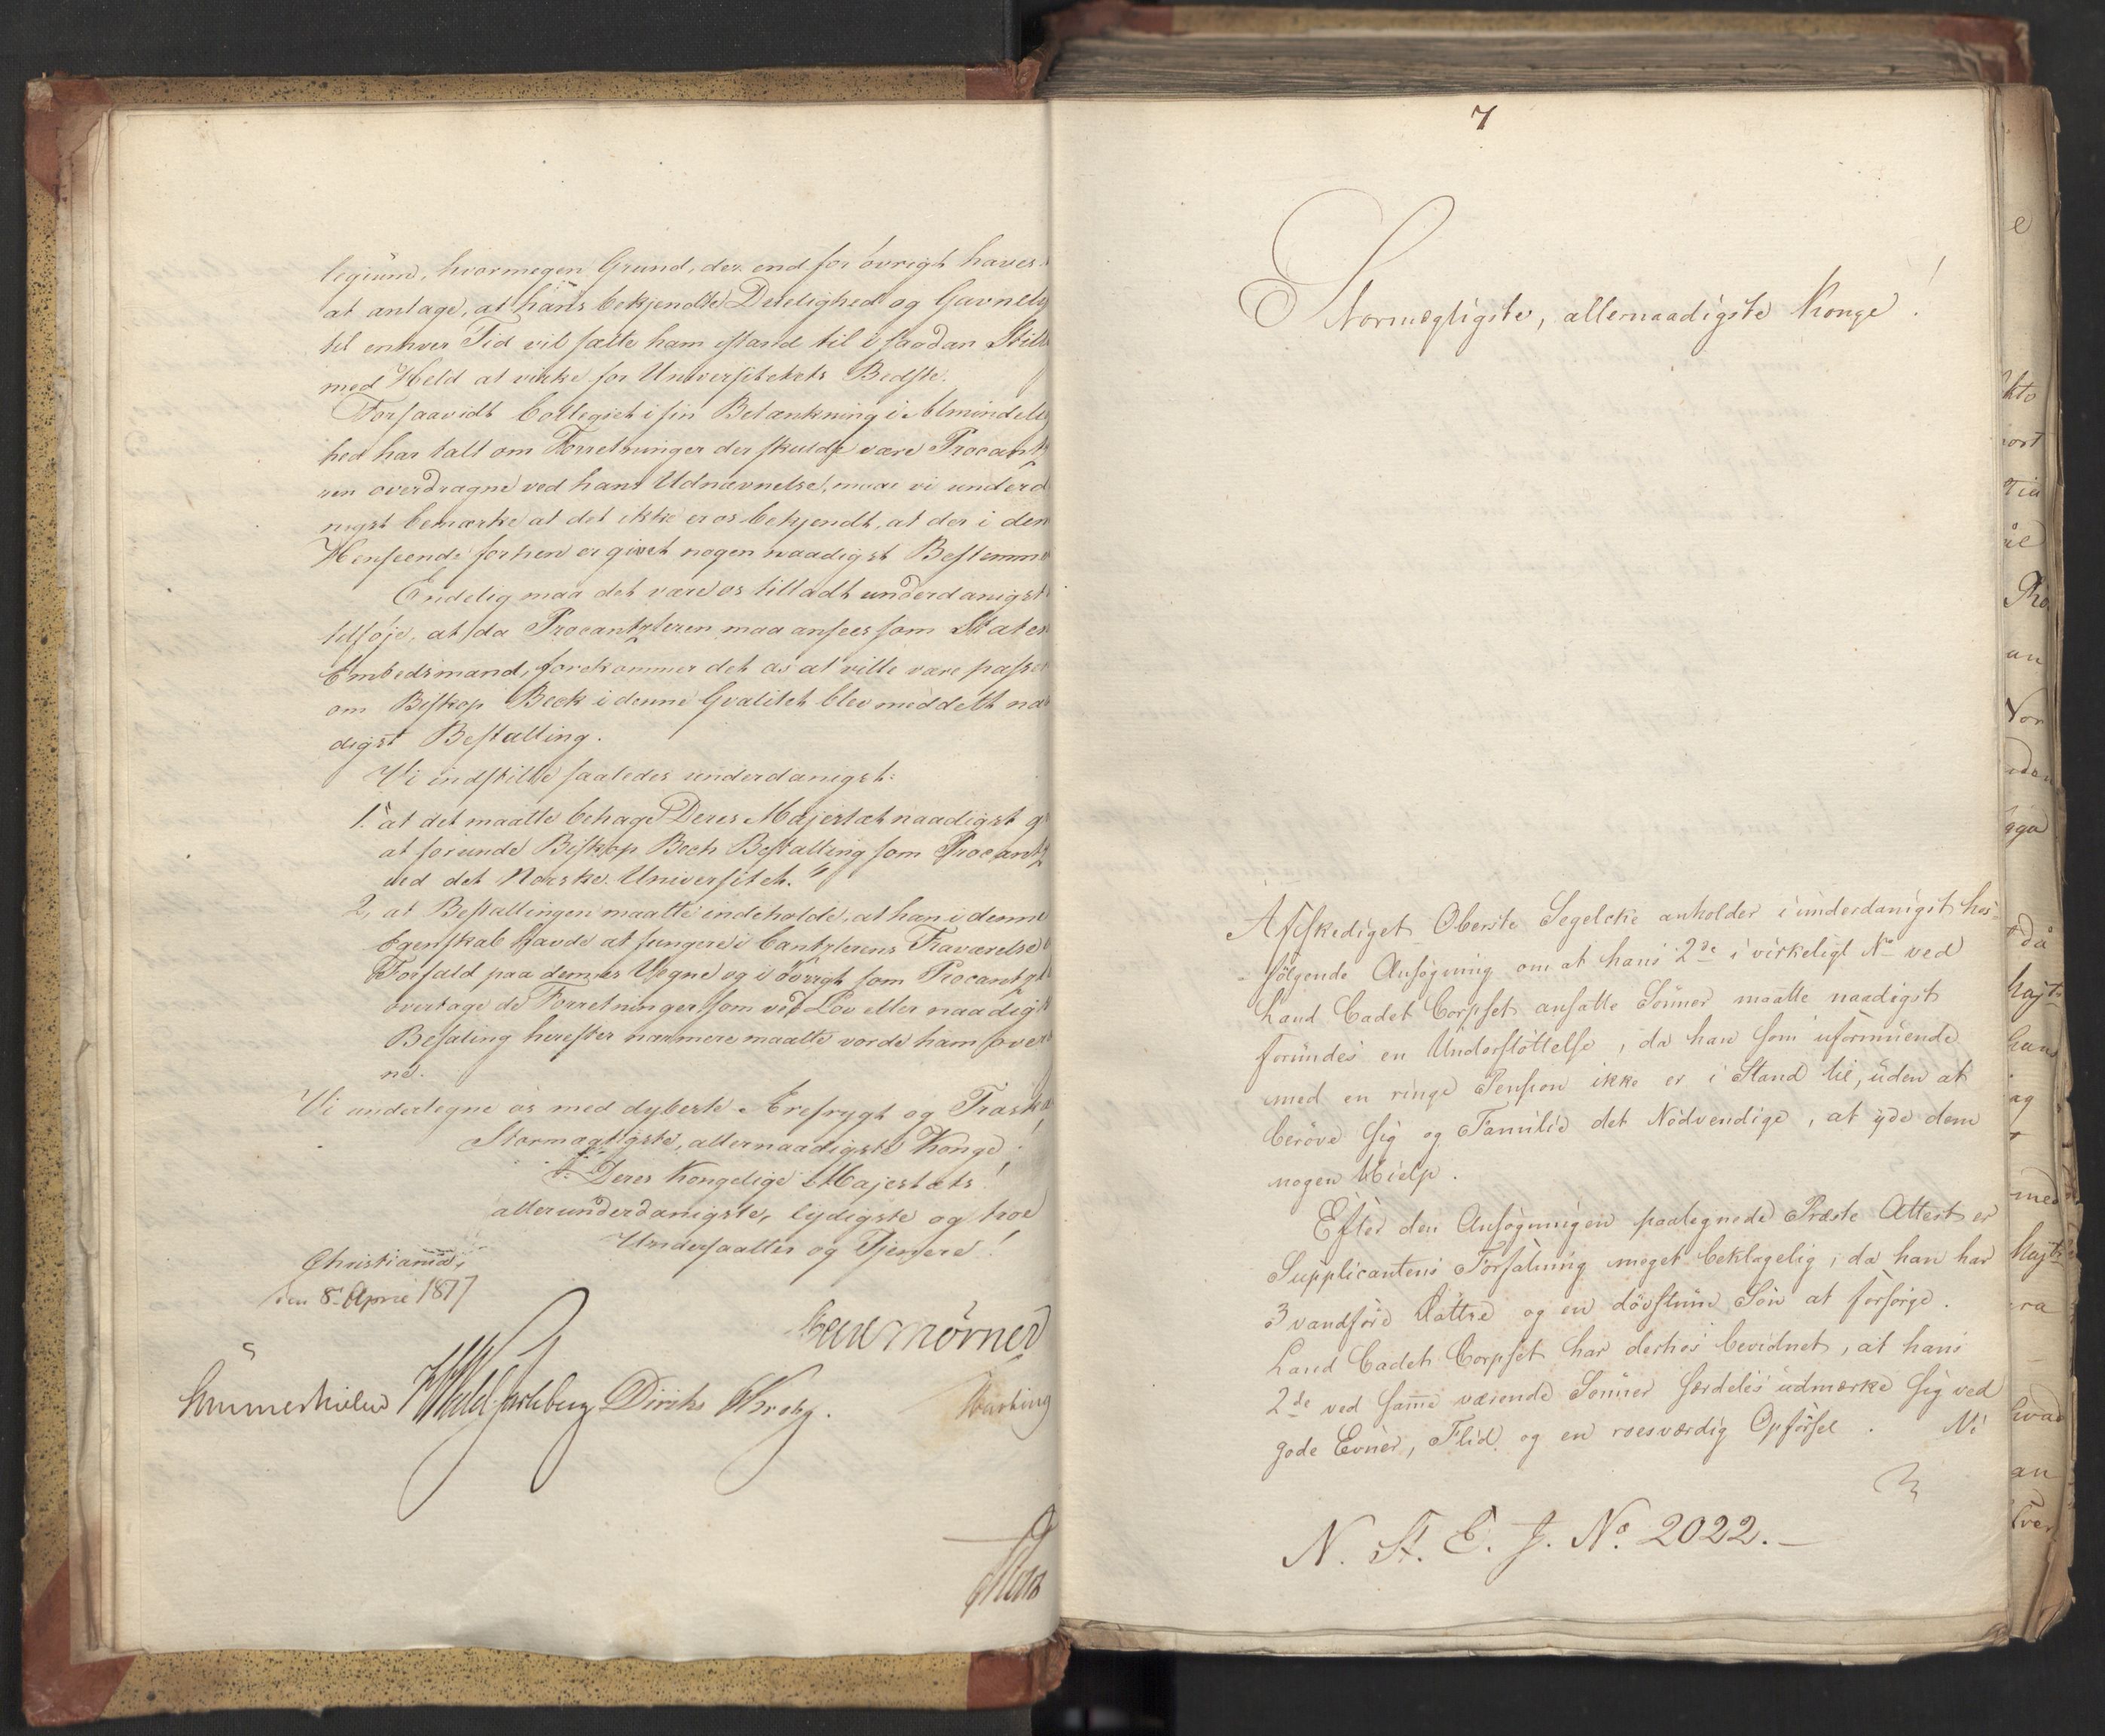 legium, hvormegen Grund, der end for øvrigt haves
at antage, at hans bekjendte Duelighed og Gavnely
til enhver Tid vil sætte ham istand til i saadan Still
med Held at virke for Universitetets Bedste.
Forsaavidt Collegiet i sin Betænkning i Almindelig
hed har talt om Forretninger der skulde være Procantz
ren overdragne ved hans Udnævnelse, maae vi underd
nigst bemærke at det ikke er os bekjendt, at der i den
Henseende forhen er givet nogen naadigst Bestemm
Endelig maa det være os tilladt underdanigst
tilføje, at da Procantzleren maa ansees som Staten
Embedsmand, forekommer det os at ville være passe
om Biskop Beck i denne Qvalitet blev meddelt na
digst Bestalling.
Vi indstille saaledes underdanigst:
1. at det maatte behage Deres Majestæt naadigst
at forunde Biskop Bech Bestalling som Procantz
ved det Norske Universitet.
2, at Bestallingen maatte indeholde, at han i denne
Egenskab havde at fungere i Cantzlerens Fraværelse
Forfald paa dennes Vegne og i øvrigt som Procantzl
overtage de Forretninger som ved Lov eller naadig
Befaling herefter nærmere maatte vorde ham over
ne.
Vi undertegne os med dybeste Ærefrygt og Troska
Stormægtigste, allernaadigste Konge!
Deres Kongelige Majestæts!
allerunderdanigste, lydigste og troe
Undersaatter og Tjenere!
Christiania,
den 8. April 1817
Mørner
Sommerhielm Diriks Krebs.
7
Stormægtigste, allernaadigste Konge!
Afskediget Oberste Segelcke anholder i underdanigst hos-
følgende Ansøgning om at hans 2de i virkeligt No ved
Land Cadet Corpset ansatte Sønner maatte naadigst
forundes en Understøttelse, da han som uformuende
med en ringe Pension ikke er i Stand til, uden at
berøve sig og Familie det Nødvendige, at yde dem
nogen Hielp.
Efter den Ansøgningen paategnede Præste Attest er
Supplicantens Forfatning meget beklagelig, da han har
3 vanføre Døttre og en døvstum Søn at forsørge.
Land Cadet Corpset har derhos bevidnet, at hans
2de ved samme værende Sønner særdeles udmærke sig ved
gode Evner, Flid og en roesværdig Opførsel. Vi
N. St. E. J. No. 2022.